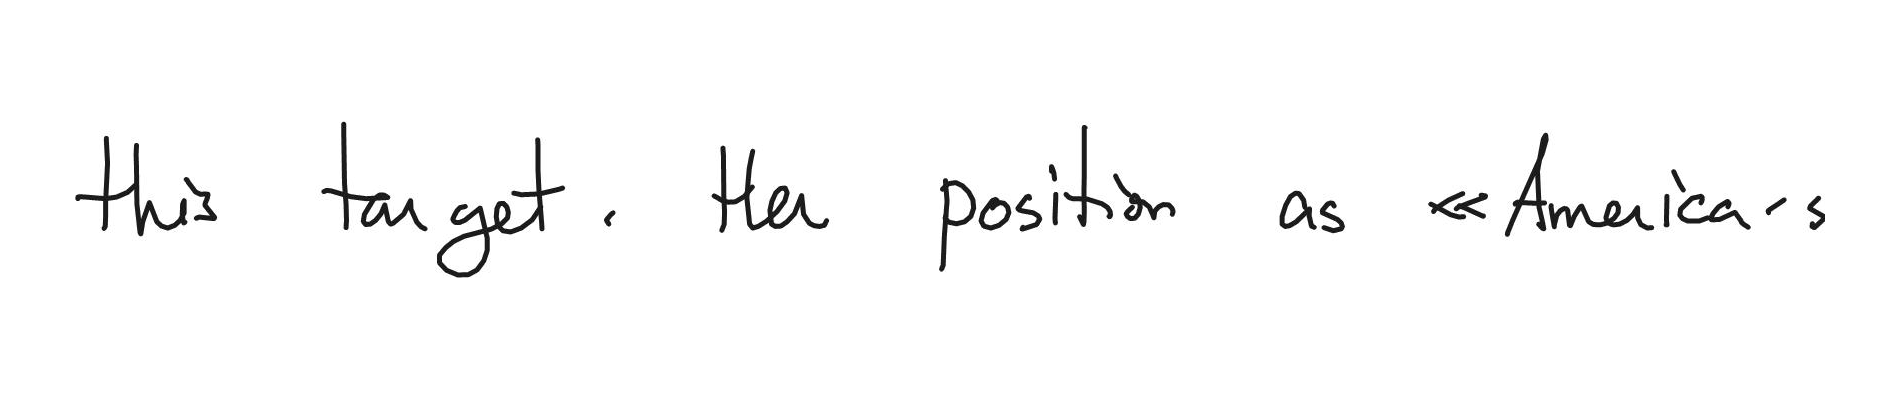 this target. Her position as «America's